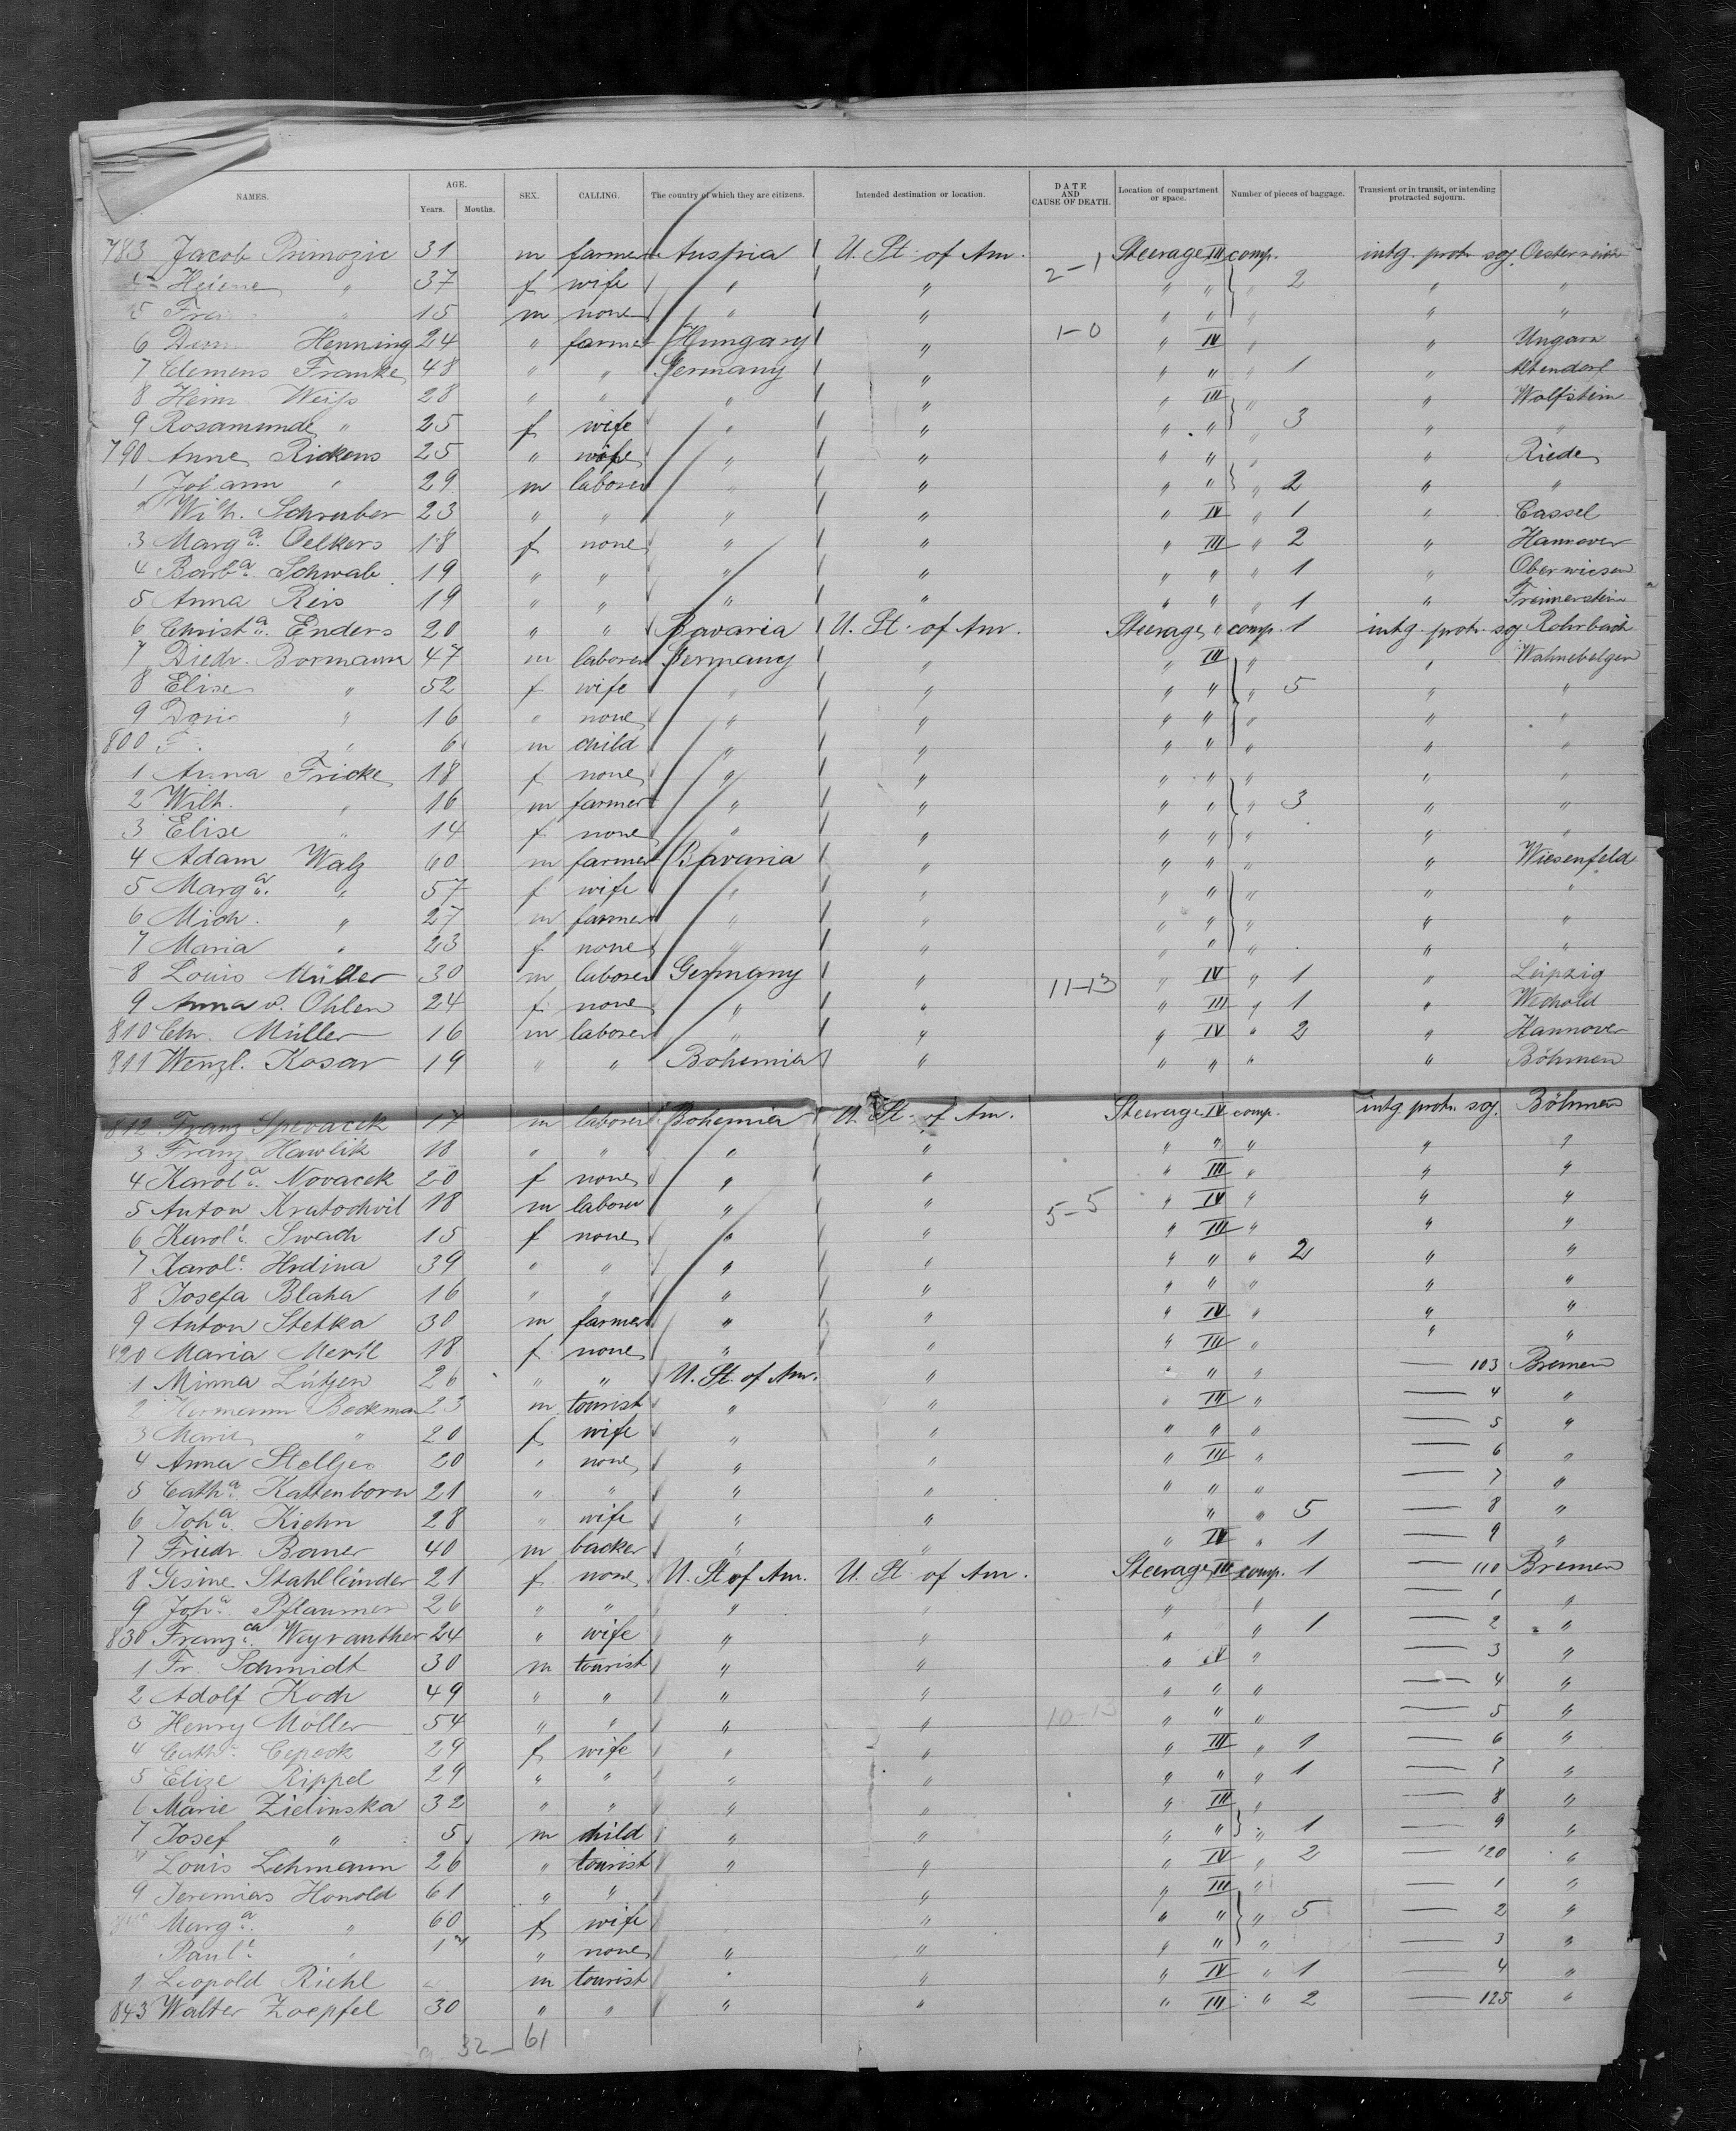 NAMES. AGE. Years. Months. SEX. CALLING. The country of which they are citizens. Intended destination or location. DATE AND CAUSE OF DEATH. Location of compartment or space. Number of pieces of baggage. Transient or in transit, or intending protracted sojourn.
783 Jacob Primozic 31 m farmer Austria U. St. of Am. 2-1 Steerage III comp. intg. protr. soj. Oesterreich
4 Helene " 37 f wife " " " " " 2 " "
5 " 15 m none " " " " " " "
6 Henning 24 " farmer Hungary " 1-0 " IV " " Ungarn
7 Clemens Franke 48 " " Germany " " " " 1 " Altendorf
8 Heinr. Weiss 28 " " " " " III " " Wolfstein
9 Rosamunde " 25 f wife " " " " " 3 " "
790 Anne Rickens 25 " wife " " " " " " Riede
1 Johann " 29 m laborer " " " " " 2 " "
2 Wilh. Schreiber 23 " " " " " IV " 1 " Cassel
3 Marga. Oelkers 18 f none " " " III " 2 " Hannover
4 Barba. Schwab 19 " " " " " " " 1 " Oberwiesen
5 Anna Reis 19 " " " " " " " 1 "
6 Christa. Enders 20 " " Bavaria U. St. of Am. Steerage " comp. 1 intg. protr. soj. Rohrbach
7 Diedr. Bormann 47 m laborer Germany " " III " "
8 Elise " 52 f wife " " " " " 5 " "
9 " 16 " none " " " " " " "
800 " 6 m child " " " " " " "
1 Anna Fricke 18 f none " " " " " " "
2 Wilh. " 16 m farmer " " " " " 3 " "
3 Elise " 14 f none " " " " " " "
4 Adam Walz 60 m farmer Bavaria " " " " " Wiesenfeld
5 Marga. " 57 f wife " " " " " " "
6 Mich. " 27 m farmer " " " " " " "
7 Maria " 23 f none " " " " " " "
8 Louis Müller 30 m laborer Germany " 11-13 " IV " 1 " Leipzig
9 Anna v. Ohlen 24 f none " " " III " 1 " Wechold
810 Chr. Müller 16 m laborer " " " IV " 2 " Hannover
811 Wenzl. Kosar 19 " " Bohemia " " " " " Böhmen
812 Franz Spevacek 17 m laborer Bohemia U. St. of Am. Steerage IV comp. intg protr. soj. Böhmen
3 Franz Hawlik 18 " " " " " " " " "
4 Karola. Novacek 20 f none " " " III " " "
5 Anton Kratochvil 18 m laborer " " 5-5 " IV " " "
6 Karole. Swach 15 f none " " " III " " "
7 Karole. Hrdina 39 " " " " " " " 2 " "
8 Josefa Blaha 16 " " " " " " " " "
9 Anton Stetka 30 m farmer " " " IV " " "
820 Maria Mertl 18 f none " " " III " " "
1 Minna Lütjen 26 " " U. St. of Am. " " " " — 103 Bremen
2 Hermann Beckman 23 m tourist " " " III " — 4 "
3 Marie " 20 f wife " " " " " — 5 "
4 Anna Stelljes 20 " none " " " III " — 6 "
5 Catha. Kattenborn 21 " " " " " " " — 7 "
6 Joha. Kiehn 28 " wife " " " " 5 — 8 "
7 Friedr. Baner 40 m backer " " " IV " 1 — 9 "
8 Gesine Stahlländer 21 f none U. St of Am. U. St. of Am. Steerage III comp. 1 — 110 Bremen
9 Joha. Pflaumer 26 " " " " " " — 1 "
830 Franzca. Weyranther 24 " wife " " " " 1 — 2 "
1 Fr. Schmidt 30 m tourist " " " IV " — 3 "
2 Adolf Koch 49 " " " " " " " — 4 "
3 Henry Möller 54 " " " " 10-13 " " " — 5 "
4 Cath. Cepeck 29 f wife " " " III " 1 — 6 "
5 Elize Rippel 29 " " " " " " " 1 — 7 "
6 Marie Zielinska 32 " " " " " III " — 8 "
7 Josef " 5 m child " " " " " 1 — 9 "
Louis Lehmann 26 " tourist " " " IV " 2 — 120 "
9 Jeremias Honold 61 " " " " III " — 1 "
Marga. " 60 f wife " " " " 5 — 2 "
Paule. " 1 " none " " " " " — 3 "
Leopold Riehl m tourist " " " IV " 1 — 4 "
843 Walter Zoepfel 30 " " " " " III " 2 — 125 "
32 61